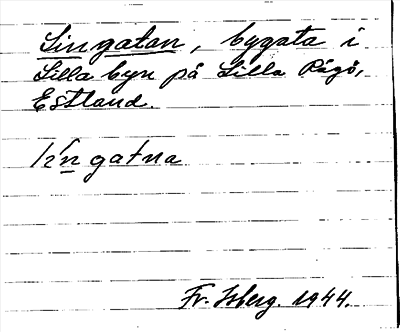 Lingatan, bygata i
Lilla byn på Lilla Rågö,
Estland.
gatna
Fr. Isberg. 1944.